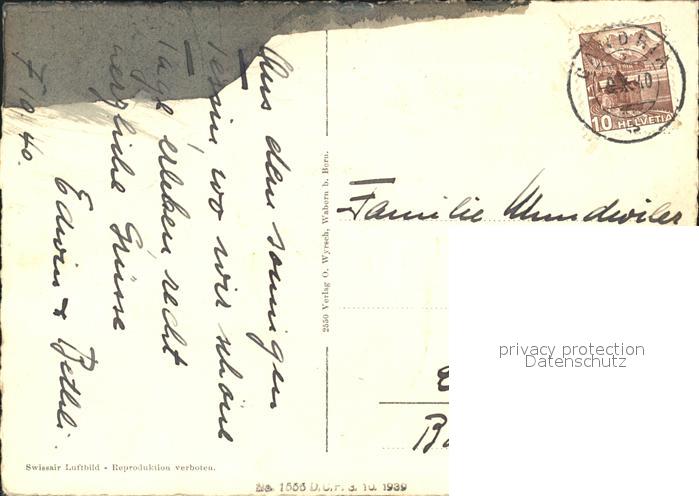 GANDRIA
10 HELVETIA
Aus dem sonnigen
Tessin, wo wir schöne
Tage erleben, recht
herzliche Grüsse
Edwin & Bethli.
10. 40.
2550 Verlag O. Wyrsch, Wabern b. Bern.
Familie Mundwiler
privacy protection
Datenschutz
Swissair Luftbild - Reproduktion verboten.
No. 1556 D.C.F. 3. 10. 1939